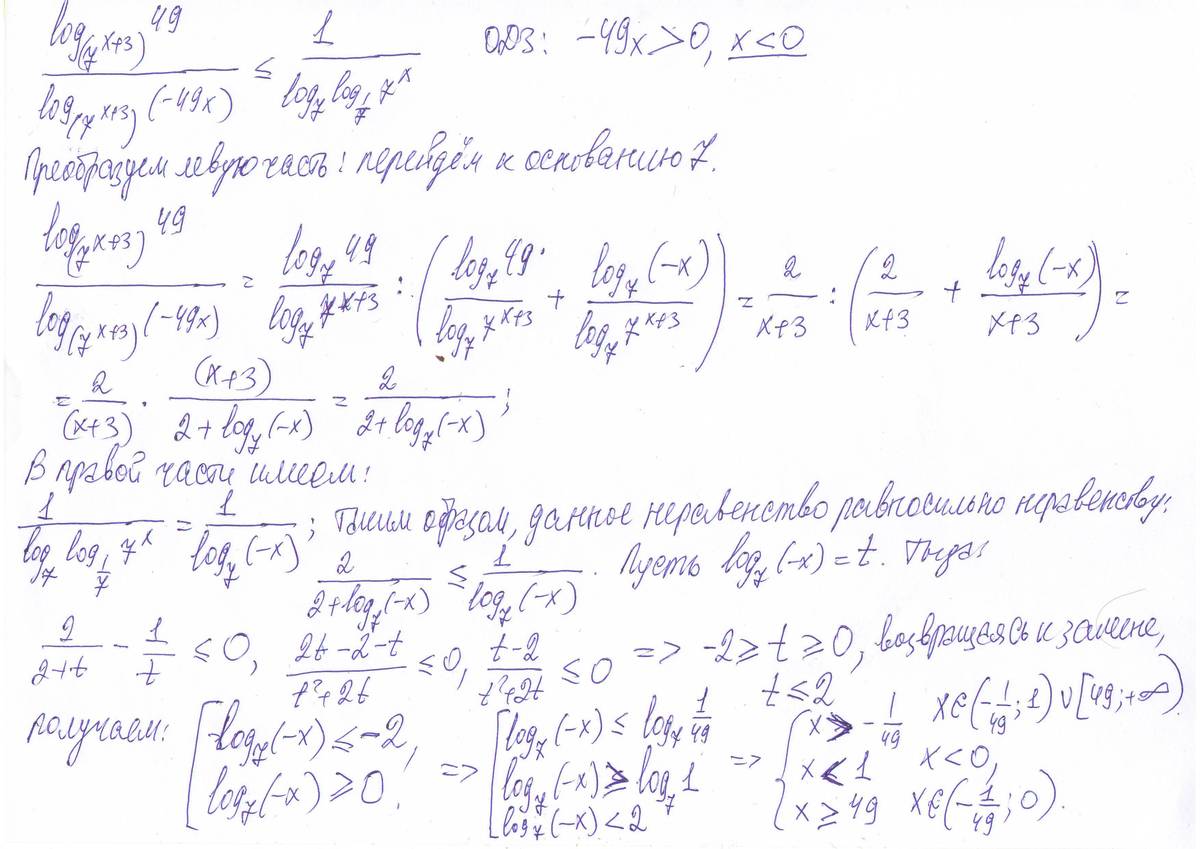 log_(7^(x+3)) 49 / log_(7^(x+3)) (-49x) ≤ 1 / log_7 log_(1/7) 7^x   ОДЗ: -49x > 0, x < 0
Преобразуем левую часть: перейдём к основанию 7.
log_(7^(x+3)) 49 / log_(7^(x+3)) (-49x) = log_7 49 / log_7 7^(x+3) : (log_7 49 / log_7 7^(x+3) + log_7 (-x) / log_7 7^(x+3)) = 2/(x+3) : (2/(x+3) + log_7 (-x)/(x+3)) =
= 2/(x+3) · (x+3)/(2+log_7 (-x)) = 2/(2+log_7 (-x));
В правой части имеем:
1 / log_7 log_(1/7) 7^x = 1 / log_7 (-x); Таким образом, данное неравенство равносильно неравенству:
2/(2+log_7 (-x)) ≤ 1/log_7 (-x). Пусть log_7 (-x) = t. Тогда:
2/(2+t) - 1/t ≤ 0, (2t-2-t)/(t²+2t) ≤ 0, (t-2)/(t²+2t) ≤ 0 => -2 ≥ t ≥ 0, возвращаясь к замене,
t ≤ 2
получаем: [log_7 (-x) ≤ -2, log_7 (-x) ≥ 0. => [log_7 (-x) ≤ log_7 1/49 log_7 (-x) ≥ log_7 1 log_7 (-x) < 2 => {x > -1/49 x < 1 x ≥ 49 x∈(-1/49; 1)∪[49; +∞).
x < 0,
x∈(-1/49; 0).